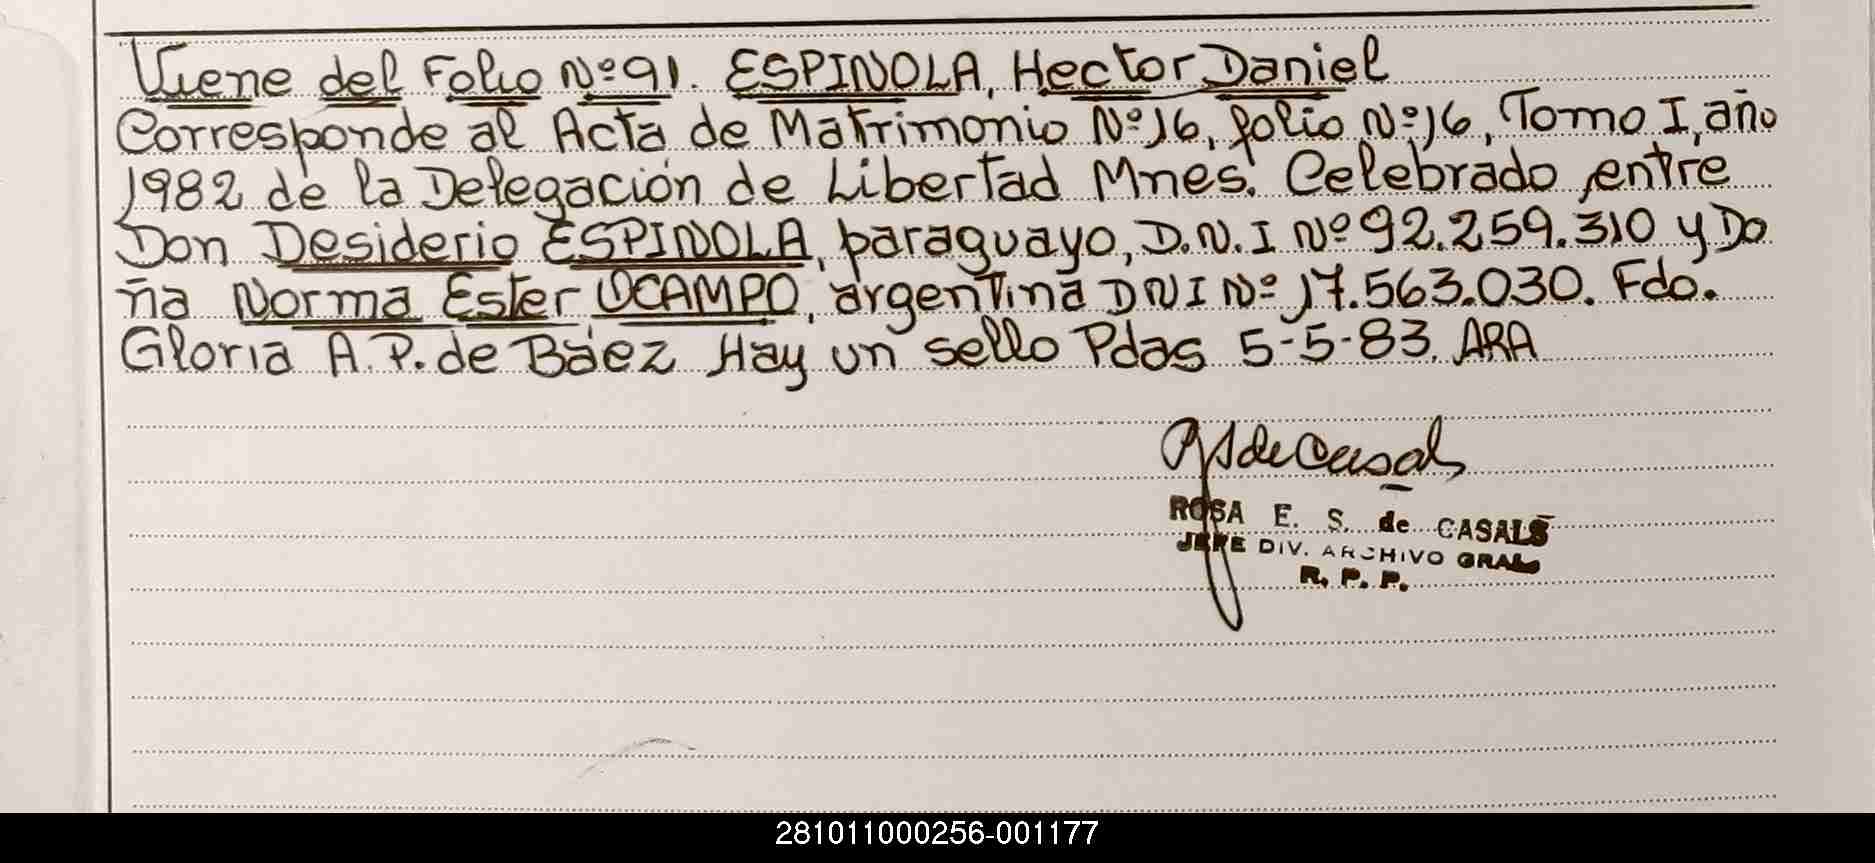 Viene del Folio Nº 91. ESPINOLA, Hector Daniel
Corresponde al Acta de Matrimonio Nº 16, folio Nº 16, Tomo I, año
1982 de la Delegación de Libertad Mnes. Celebrado entre
Don Desiderio ESPINOLA, paraguayo, D.N.I Nº 92.259.310 y Do
ña Norma Ester OCAMPO, argentina DNI Nº 17.563.030. Fdo.
Gloria A. P. de Báez Hay un sello Pdas 5-5-83. ARA
ROSA E. S. de CASALS
JEFE DIV. ARCHIVO GRAL
R. P. P.
281011000256-001177